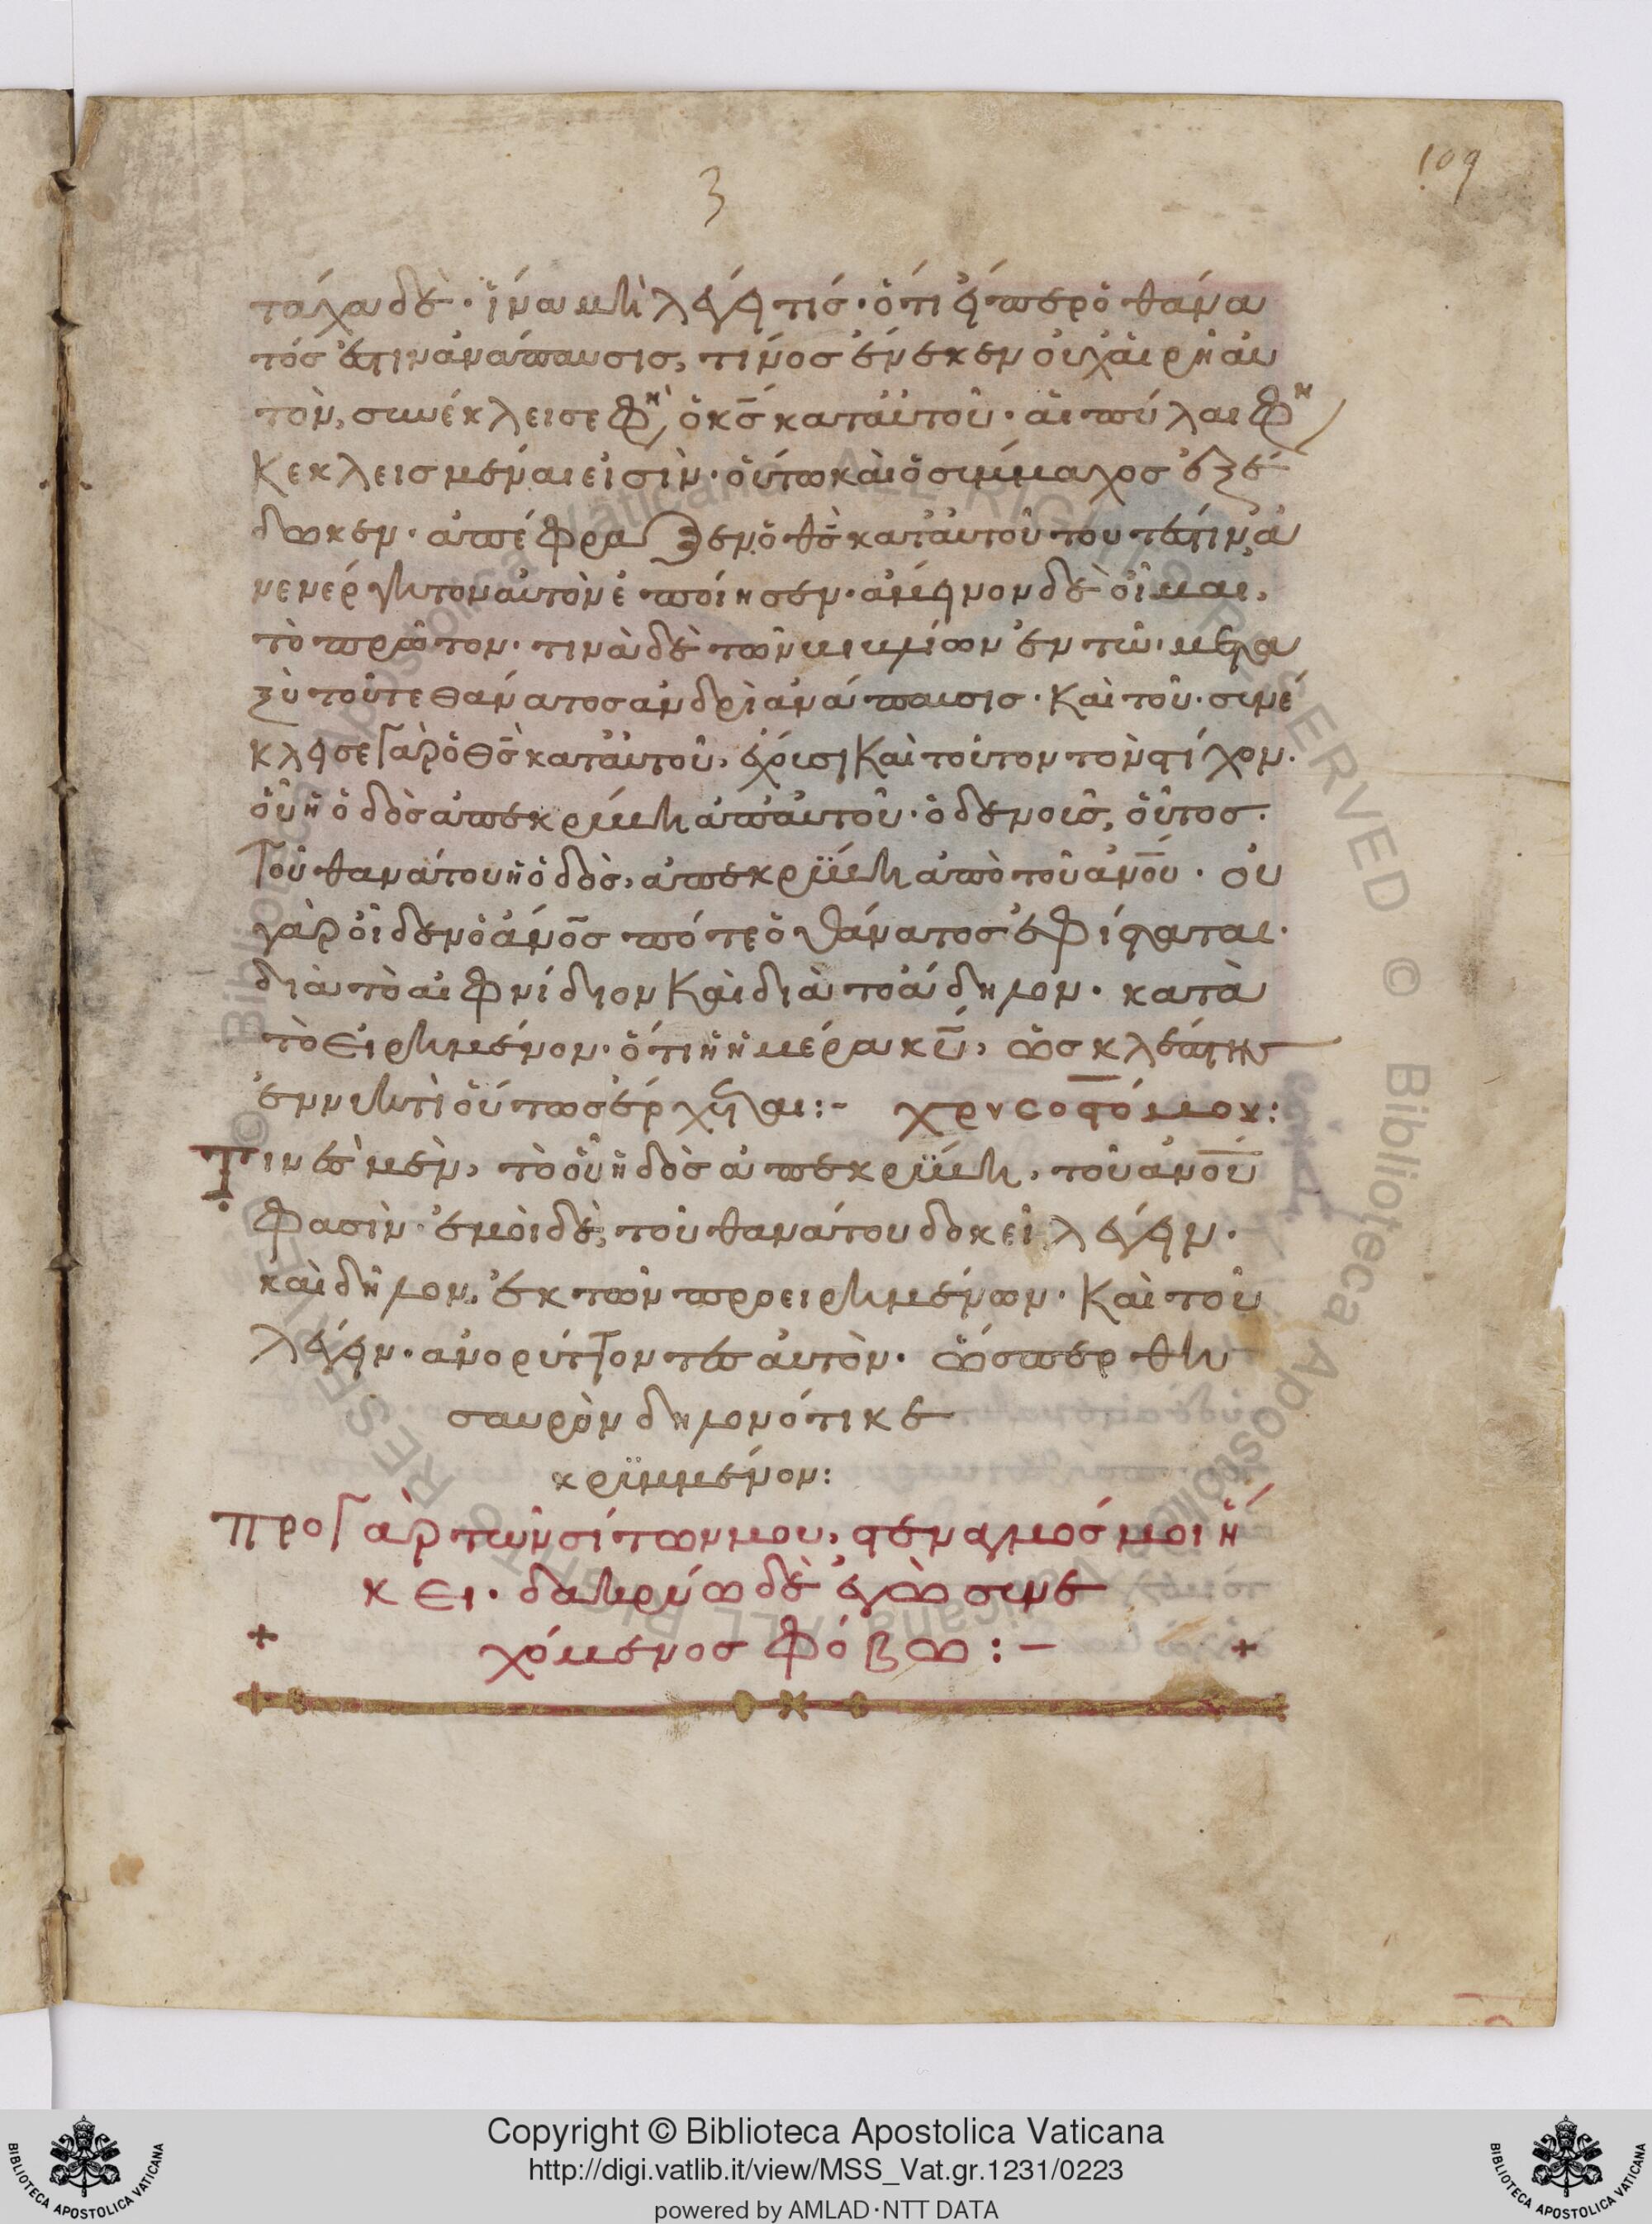 3
109
τάχα δὲ· ἵνα μὴ λέγη τίσ· ὅτι εἴπερ ὁ θάνα
τόσ ἐστιν ἀνάπαυσισ, τίνοσ ἕνεκεν οὐχ αἱρῆ αὐ
τὸν, συνέκλεισε φη(σὶ) ὁ κσ κατ αὐτοῦ· αἱ πύλαι φη(σὶ)
κεκλεισμέναι εἰσὶν· οὕτω καὶ ὁ σύμμαχος ἐξέ
δωκεν· ἀπέφραξεν ὁ θσ κατ αὐτοῦ τουτέστιν ἀ
νενέργητον αὐτὸν ἐποίησεν· ἄμεινον δὲ οἶμαι,
τὸ πρῶτον· τινὰ δὲ τῶν μιμίων ἐν τῶ· μετα
ξὺ τοῦ τε θάνατοσ ἀνδρὶ ἀνάπαυσισ· καὶ τοῦ· συνέ
κλεισε γὰρ ὁ θσ κατ αὐτοῦ, ἔχουσι καὶ τοῦτον τὸν στίχον·
οὗ ἡ ὁδὸσ ἀπεκρύβη ἀπ αὐτοῦ· ὁ δὲ νοῦσ, οὗτοσ·
τοῦ θανάτου ἡ ὁδὸσ, ἀπεκρύβη ἀπὸ τοῦ ἀνου· οὐ
γὰρ οἶδεν ὁ ἄνοσ πότε ὁ θάνατοσ ἐφίσταται·
διὰ τὸ αἰφνίδιον καὶ διὰ τὸ ἄδηλον· κατὰ
τὸ εἰρημένον· ὅτι ἡ ἡμέρα κυ, ὡσ κλέπτησ
ἐν νυκτὶ οὕτωσ ἔρχεται:- χρυσοστόμου:
Τινὲσ μὲν, τὸ οὗ ἡ ὁδὸσ ἀπεκρύβη, τοῦ ἀνου
φασὶν· ἐμοὶ δὲ, τοῦ θανάτου δοκεῖ λέγειν·
καὶ δῆλον, ἐκ τῶν προειρημένων· καὶ τοῦ
λέγειν· ἀνορύττοντεσ αὐτὸν· ὥσπερ θη
σαυρὸν δηλονότι κε
κρυμμένον:
προ γὰρ τῶν σίτων μου, στεναγμόσ μοι ἥ
κει· δακρύω δὲ ἐγὼ συνε
χόμενοσ φόβω:-
Copyright © Biblioteca Apostolica Vaticana
http://digi.vatlib.it/view/MSS_Vat.gr.1231/0223
powered by AMLAD·NTT DATA